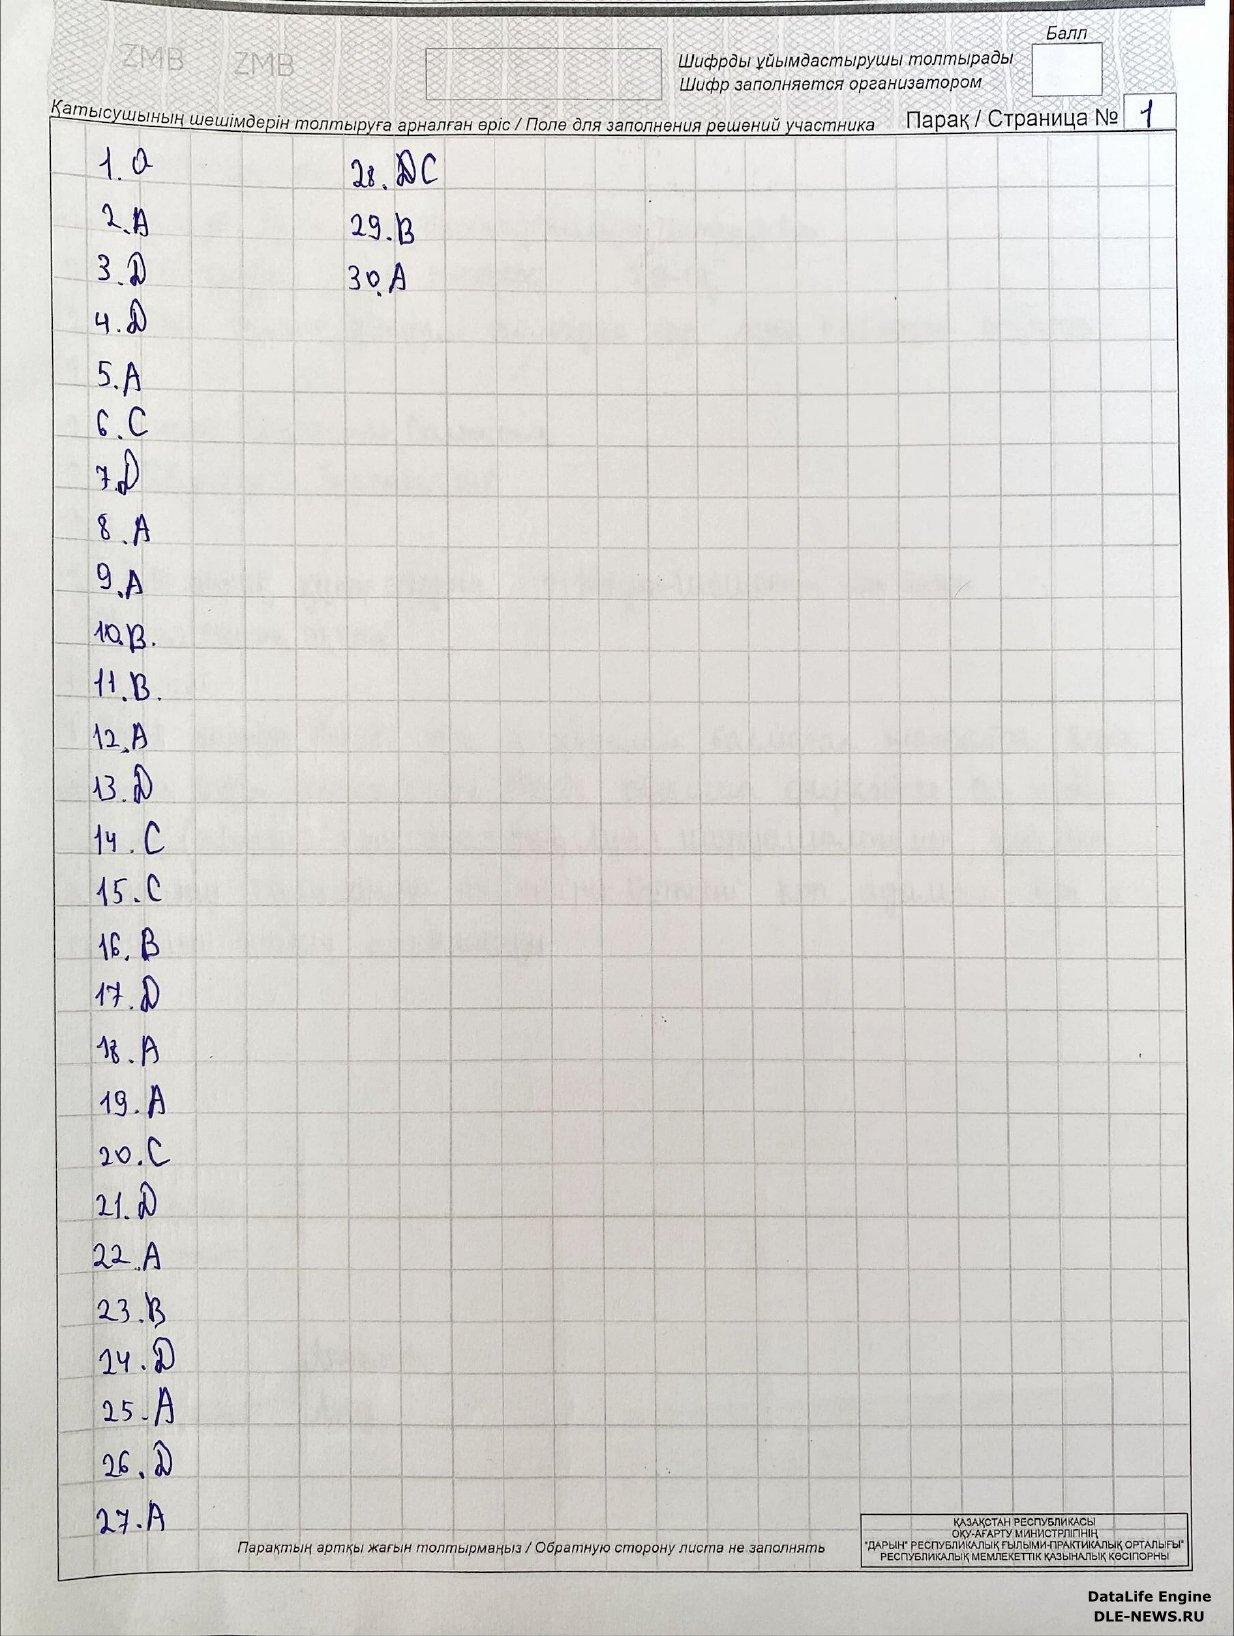 ZMB ZMB
Балл
Шифрды ұйымдастырушы толтырады
Шифр заполняется организатором
Қатысушының шешімдерін толтыруға арналған өріс / Поле для заполнения решений участника
Парақ / Страница № 1
1. a
2. A
3. D
4. D
5. A
6. C
7. D
8. A
9. A
10. B.
11. B.
12. A
13. D
14. C
15. C
16. B
17. D
18. A
19. A
20. C
21. D
22. A
23. B
24. D
25. A
26. D
27. A
28. C
29. B
30. A
Парақтың артқы жағын толтырмаңыз / Обратную сторону листа не заполнять
ҚАЗАҚСТАН РЕСПУБЛИКАСЫ
ОҚУ-АҒАРТУ МИНИСТРЛІГІНІҢ
"ДАРЫН" РЕСПУБЛИКАЛЫҚ ҒЫЛЫМИ-ПРАКТИКАЛЫҚ ОРТАЛЫҒЫ"
РЕСПУБЛИКАЛЫҚ МЕМЛЕКЕТТІК ҚАЗЫНАЛЫҚ КӘСІПОРНЫ
DataLife Engine
DLE-NEWS.RU